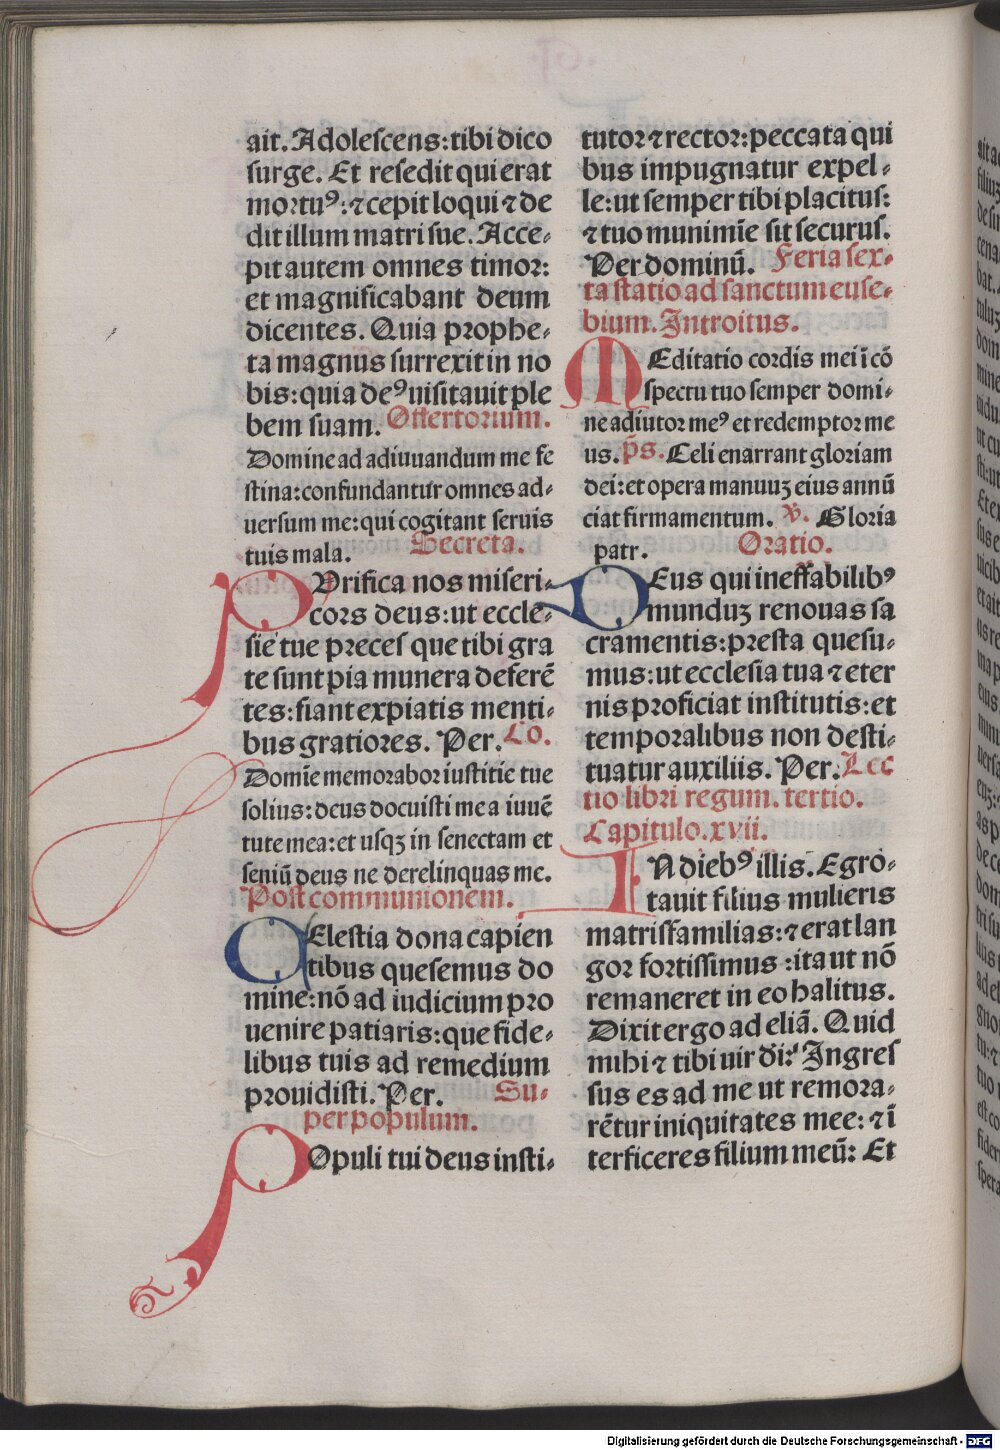 ait. Adolescens: tibi dico
surge. Et resedit qui erat
mortuꝰ: ⁊ cepit loqui ⁊ de
dit illum matri sue. Acce-
pit autem omnes timor:
et magnificabant deum
dicentes. Quia prophe-
ta magnus surrexit in no
bis: quia deꝰ uisitauit ple
bem suam. Offertorium.
Domine ad adiuuandum me fe
stina: confundantur omnes ad-
uersum me: qui cogitant seruis
tuis mala. Secreta.
PUrifica nos miseri-
cors deus: ut eccle-
sie tue preces que tibi gra
te sunt pia munera deferē
tes: fiant expiatis menti-
bus gratiores. Per. Cō.
Domīe memorabor iustitie tue
solius: deus docuisti me a iuuē
tute mea: et usqꝫ in senectam et
seniū deus ne derelinquas me.
Post communionem.
CElestia dona capien
tibus quesemus do
mine: nō ad iudicium pro
uenire patiaris: que fide-
libus tuis ad remedium
prouidisti. Per. Su-
per populum.
POpuli tui deus insti-
tutor ⁊ rector: peccata qui
bus impugnatur expel-
le: ut semper tibi placitus:
⁊ tuo munimīe sit securus.
Per dominū. Feria sex-
ta statio ad sanctum euse-
bium. Introitus.
MEditatio cordis mei ī cō
spectu tuo semper domi-
ne adiutor meꝰ et redemptor me
us. p̄s. Celi enarrant gloriam
dei: et opera manuuꝫ eius annū
ciat firmamentum. ℣. Gloria
patr. Oratio.
DEus qui ineffabilibꝰ
munduꝫ renouas sa
cramentis: presta quesu-
mus: ut ecclesia tua ⁊ eter
nis proficiat institutis: et
temporalibus non desti-
tuatur auxiliis. Per. Lec
tio libri regum. tertio.
Capitulo. xvii.
IN diebꝰ illis. Egro-
tauit filius mulieris
matrisfamilias: ⁊ erat lan
gor fortissimus: ita ut nō
remaneret in eo halitus.
Dixit ergo ad eliā. Quid
mihi ⁊ tibi uir di: Ingres
sus es ad me ut remora-
rētur iniquitates mee: ⁊ ī
terficeres filium meū: Et
Digitalisierung gefördert durch die Deutsche Forschungsgemeinschaft - DFG